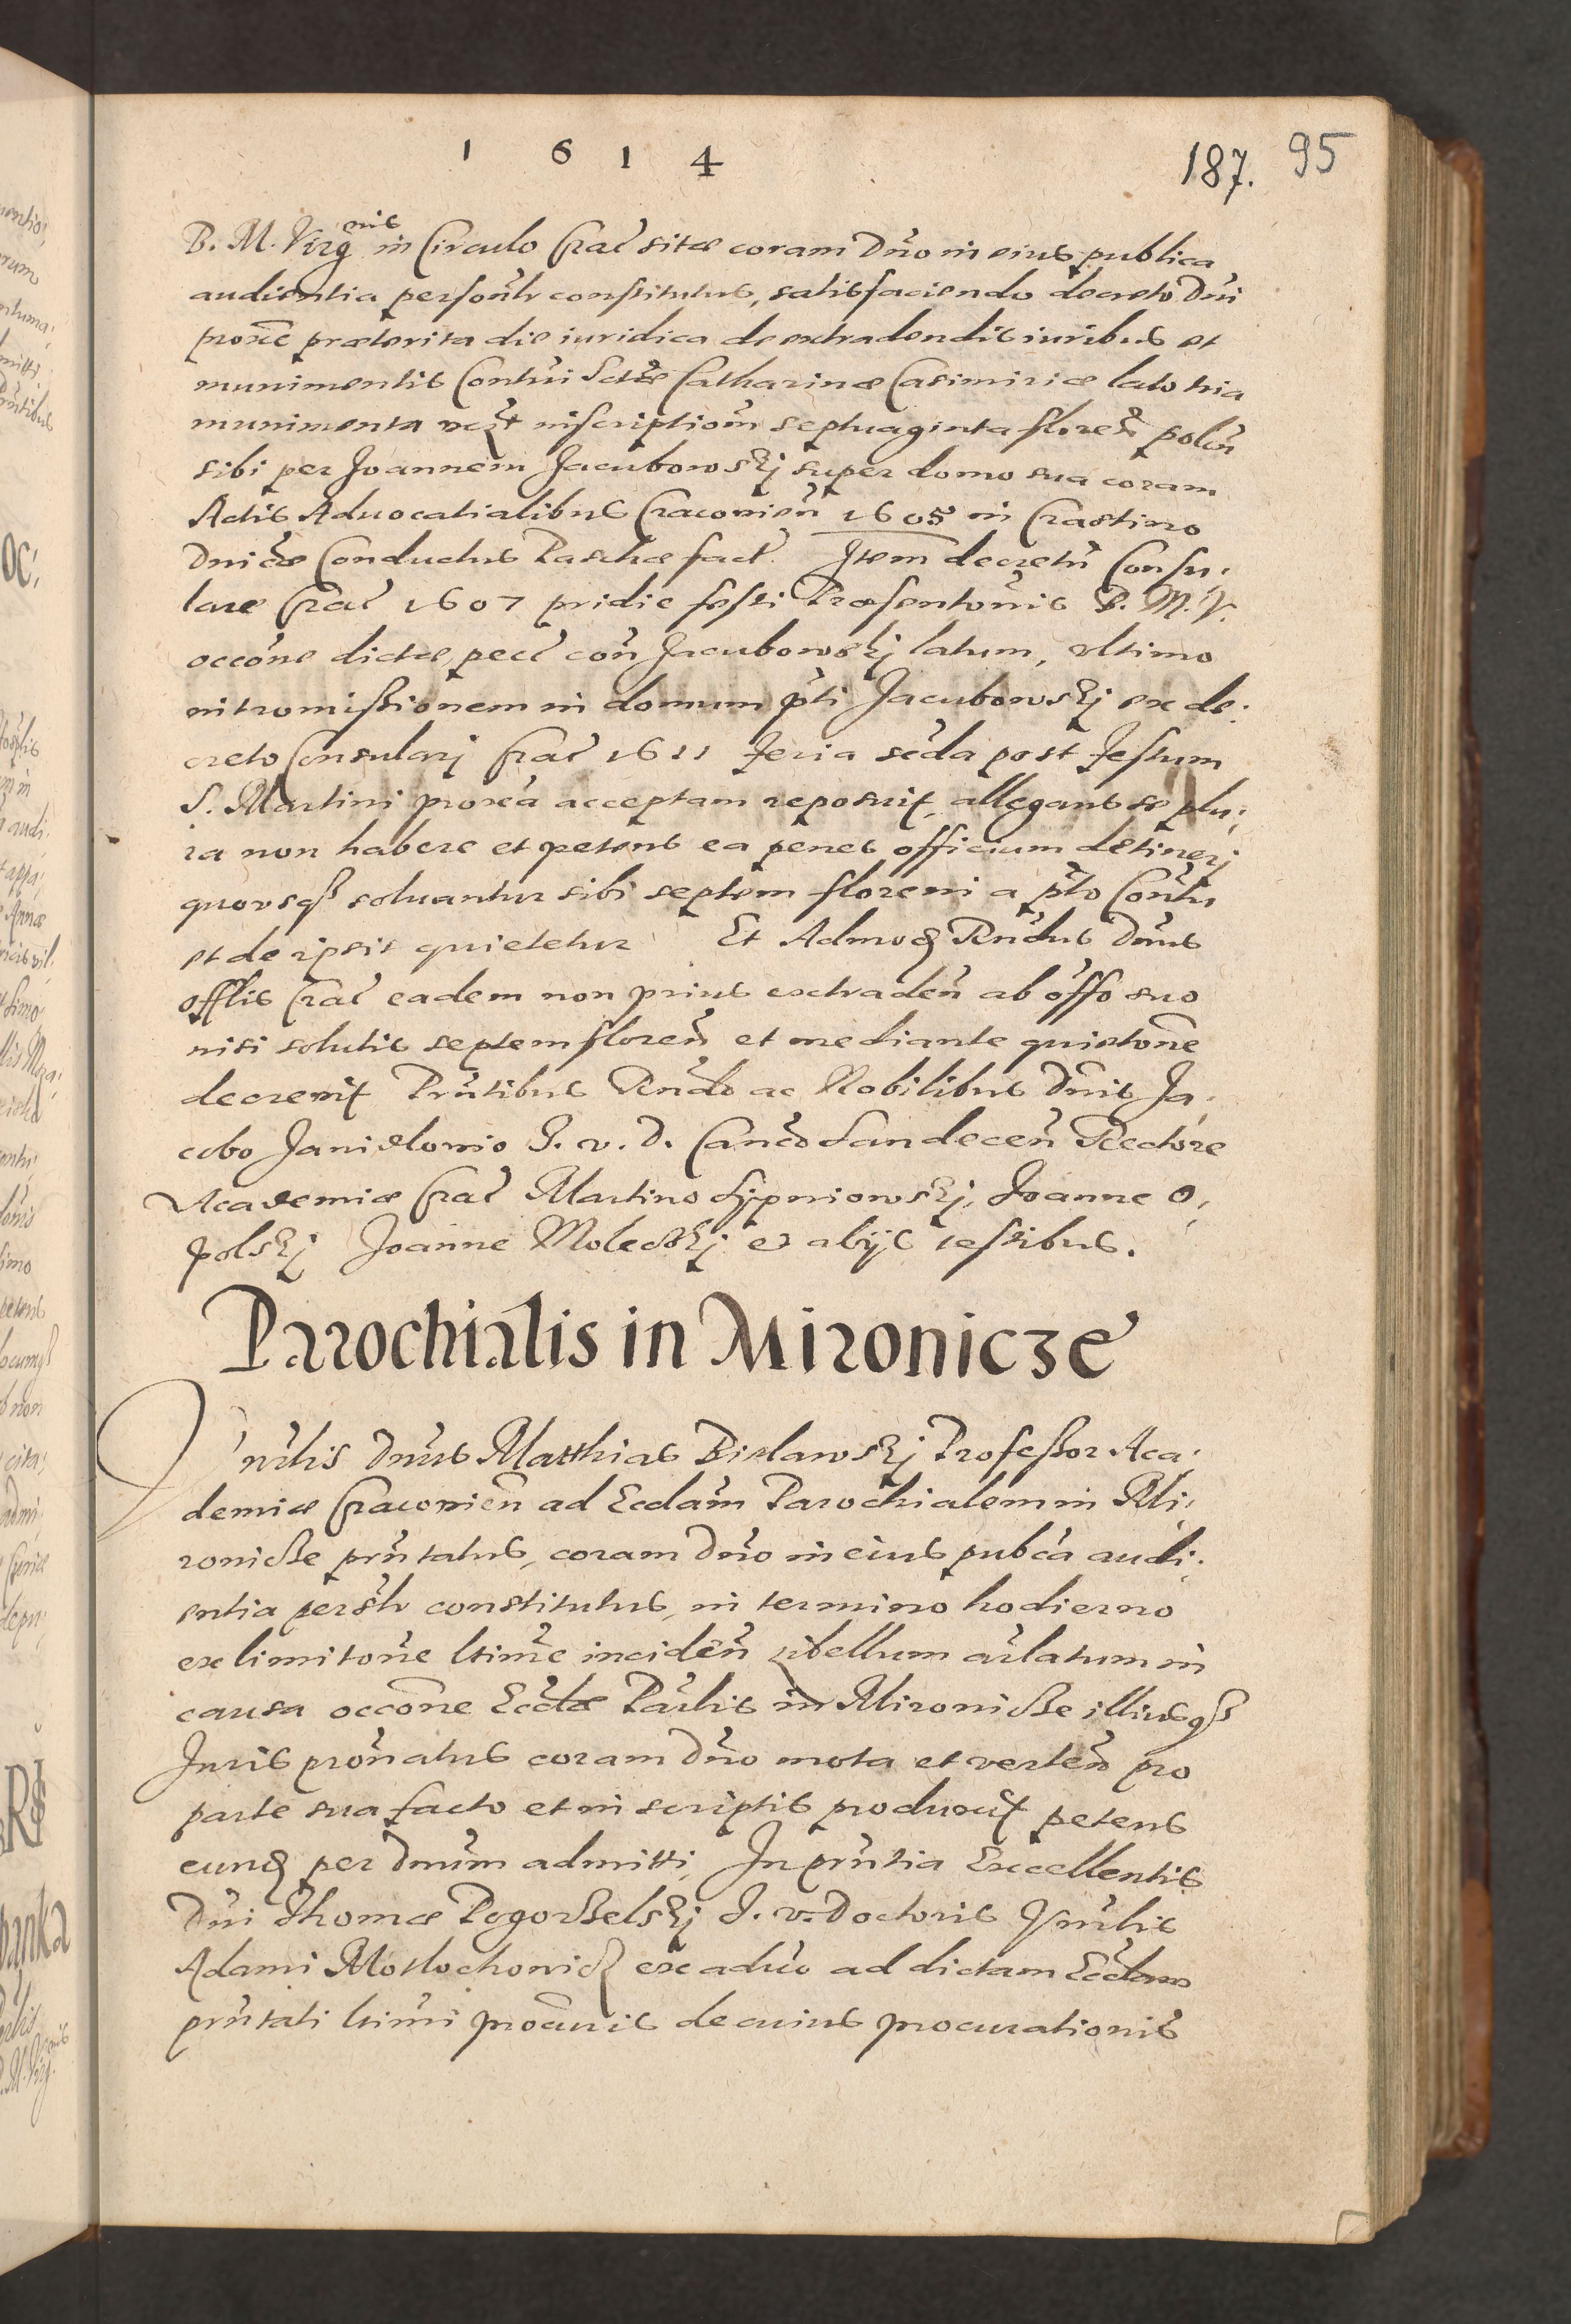 1 6 1 4
187. 95
B. M. Virgnis in Circulo Crac̃ sitae coram Dño in eius publica
audientia personlr constitutus, satisfaciendo decreto Dñi
proxe praeterita die iuridica de extradendis iuribus et
munimentis Contui Sctae Catharinae Casimiriae lato tria
munimenta vczt inscriptiom septuaginta floreñ polon
sibi per Joannem Jacubowskj super domo sua coram
Actis Aduocatialibus Cracovieñ 1605 in Crastino
Dnicae Conductus Paschae fact Item decretũ Consu,
lare Crac̃ 1607 pridie festi Praesentonis B. M. V.
occone dictae pecc con Jacubowskj latum, vltimo
intromissionem in domum pti Jacubowskj ex de,
creto Consularj Crac̃ 1611 feria scda post festum
S. Martini proxa acceptam reposuit, allegans se plu,
ra non habere et petens ea penes officium detinerj
quousq soluantur sibi septem floreni a pto Contu
et de ipsis quietetur Et Admod Rndus Dnus
Offlis Crac̃ eadem non prius extradeñ ab offo suo
nisi solutis septem floreñ et mediante quietone
decrevit Prntibus Rndo ac Nobilibus Dnis Ja,
cobo Janidlovio J. v. D. Canco Sandeceñ Rectore
Academiae Crac̃ Martino Sypniowskj, Joanne O,
polskj Joanne Moleckj et alijs testibus.
Parochialis in Mironicze
Vnrlis Dnus Matthias Bielawskj Professor Aca,
demiae Cracovieñ ad Eccłam Parochialem in Mi,
ronicze prntatus, coram Dno in eius pubca audi,
entia persolr constitutus, in termino hodierno
ex limitone ltime incideñ libellum arlatum in
causa occone Eccłae Parlis in Mironicze illiusq
Juris pronatus coram Dno mota et verteñ pro
parte sua facto et in scriptis produxit petens
eund per Dnum admitti, In prntia Excellentis
Dni Thomae Pogorzelskj J. v. Doctoris Vnrlis
Adami Motlochowicz ex aduo ad dictam Eccłam
prntati ltimi procuris de cuius procurationis